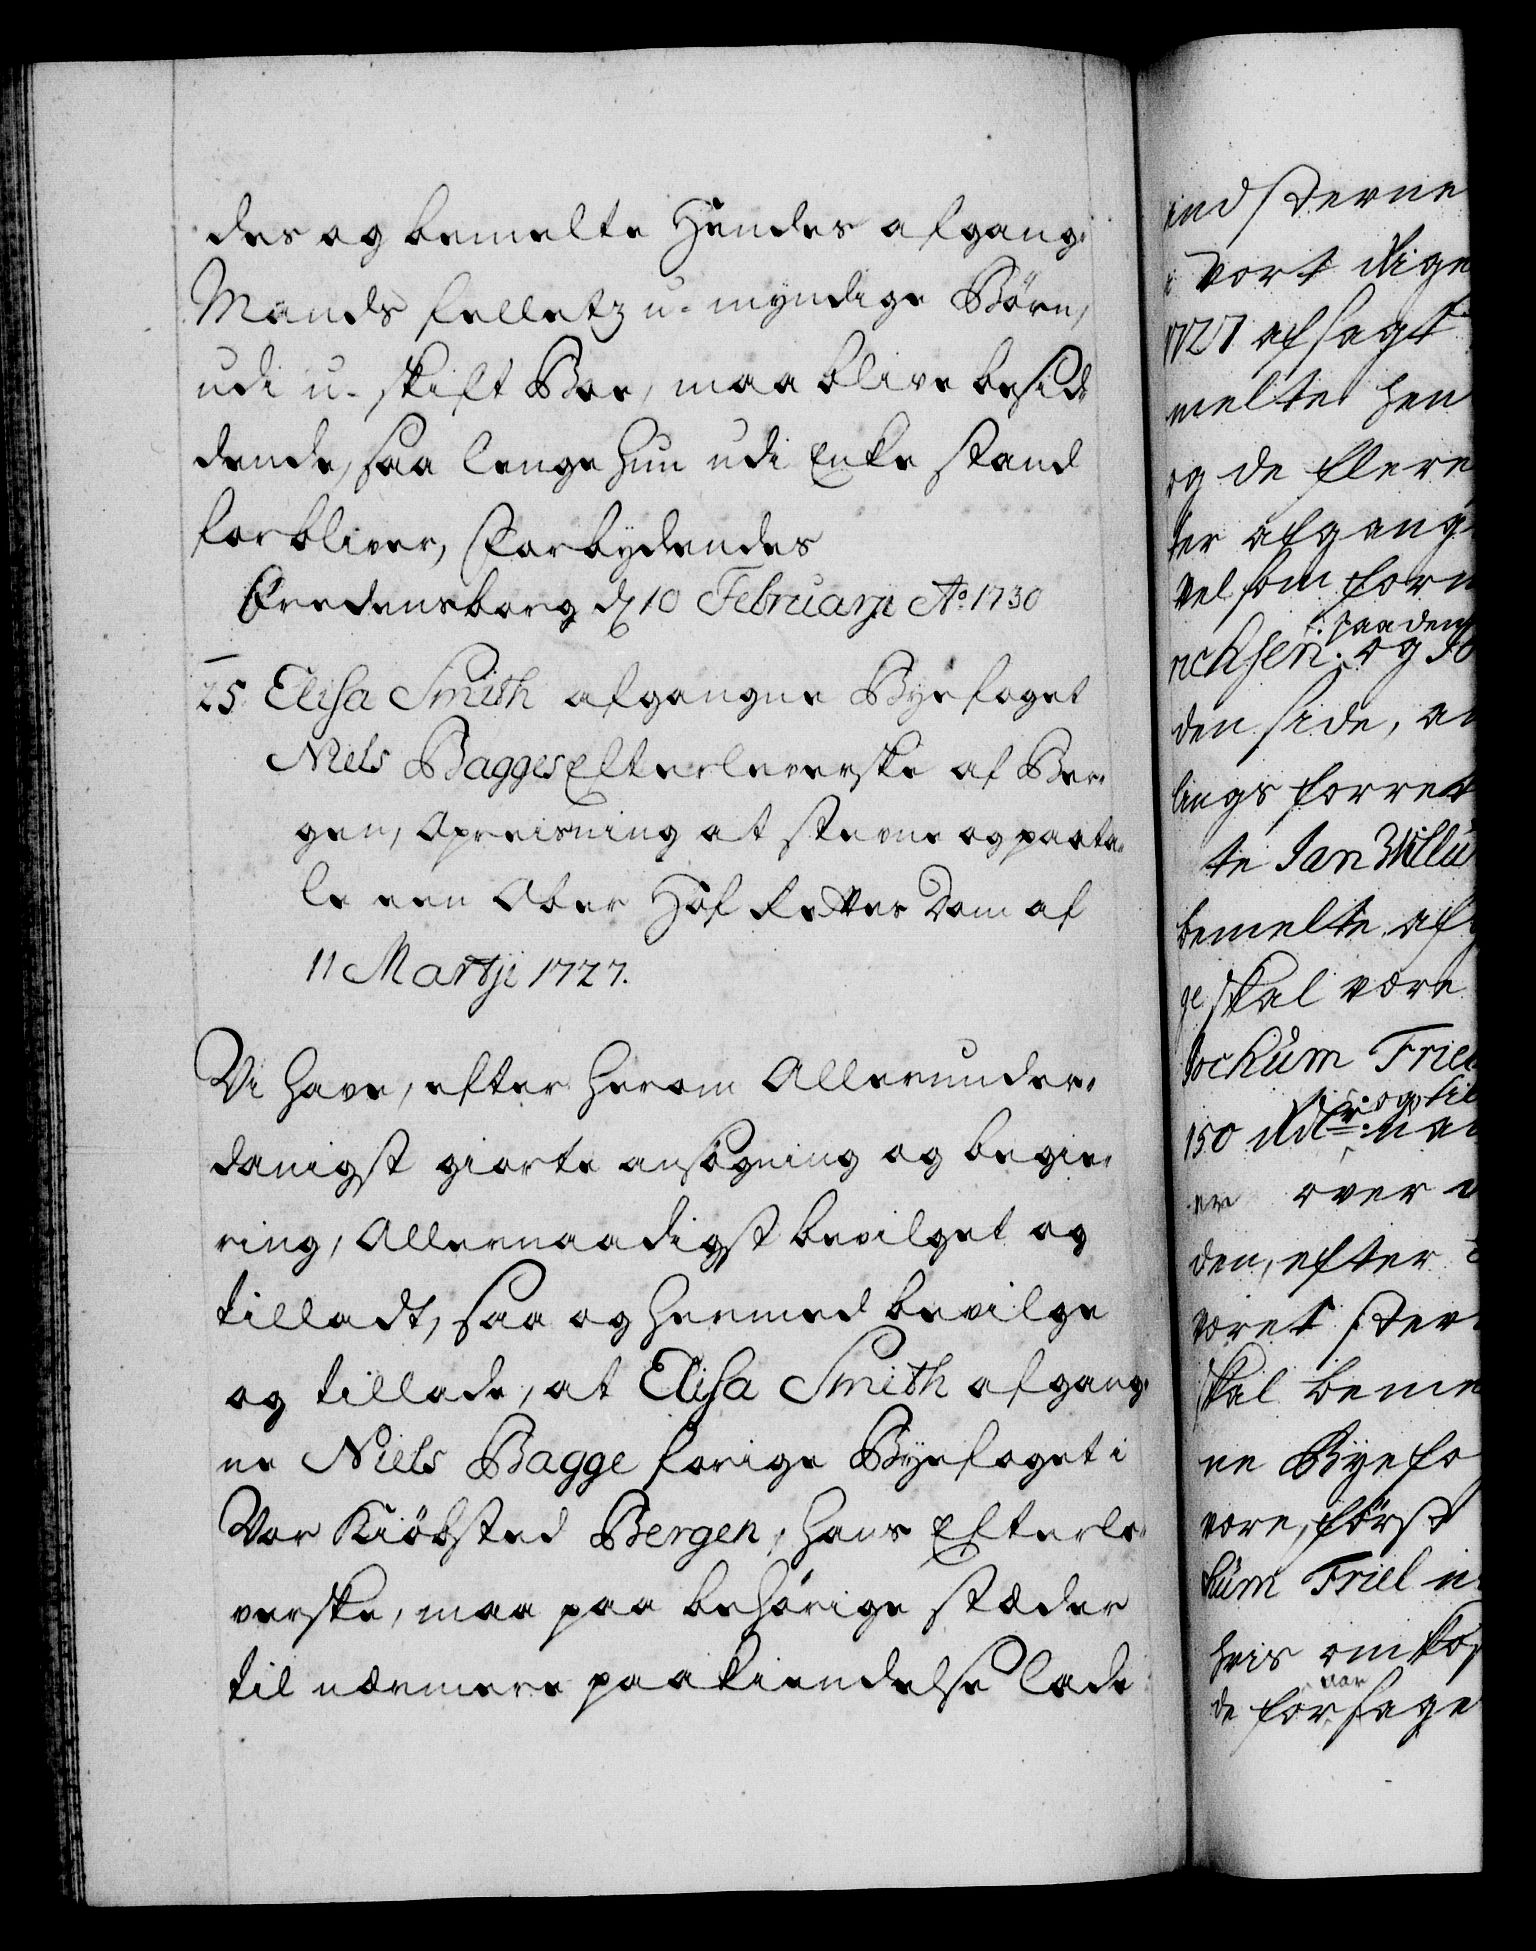 des og bemelte Hendes afgang:
Mands felletz u-myndige Börn,
udi u-skift Boe, maa blive besid-
dende, saa lenge hun udi Enke stand
forbliver, Forbydendes
Fredensborg d 10 Februarji Ao 1730
25 Elisa Smith afgangne Byefoget
Niels Bagges Efterleverske af Ber-
gen, Opreisning at stevne og paata-
le een Ober Hof Rettes Dom af
11 Martji 1727.
Vi have, efter herom Allerunder-
danigst giorte ansögning og begie-
ring, Allernaadigst bevilget og
tilladt, saa og hermed bevilge
og tillade, at Elisa Smith afgang-
ne Niels Bagge forige Byefoget i
Vor Kiöbsted Bergen, hans Efterle-
verske, maa paa behörige stæder
til nærmere paakiendelse lade
ind stevne
i Vort Rige
1727 afsagt
melte hen
og de flere
ter afgang
vel som forn
: paa den
richsen og Jo
den side, an
lings forret
te Jan Willu
bemelte afg
ge skal være
Jochum Friel
og til
150 Rdr
er over
den, efter
været stev
skal beme
ne Byefo
være, först
hum Friel
hvis omkos
var
de forsage